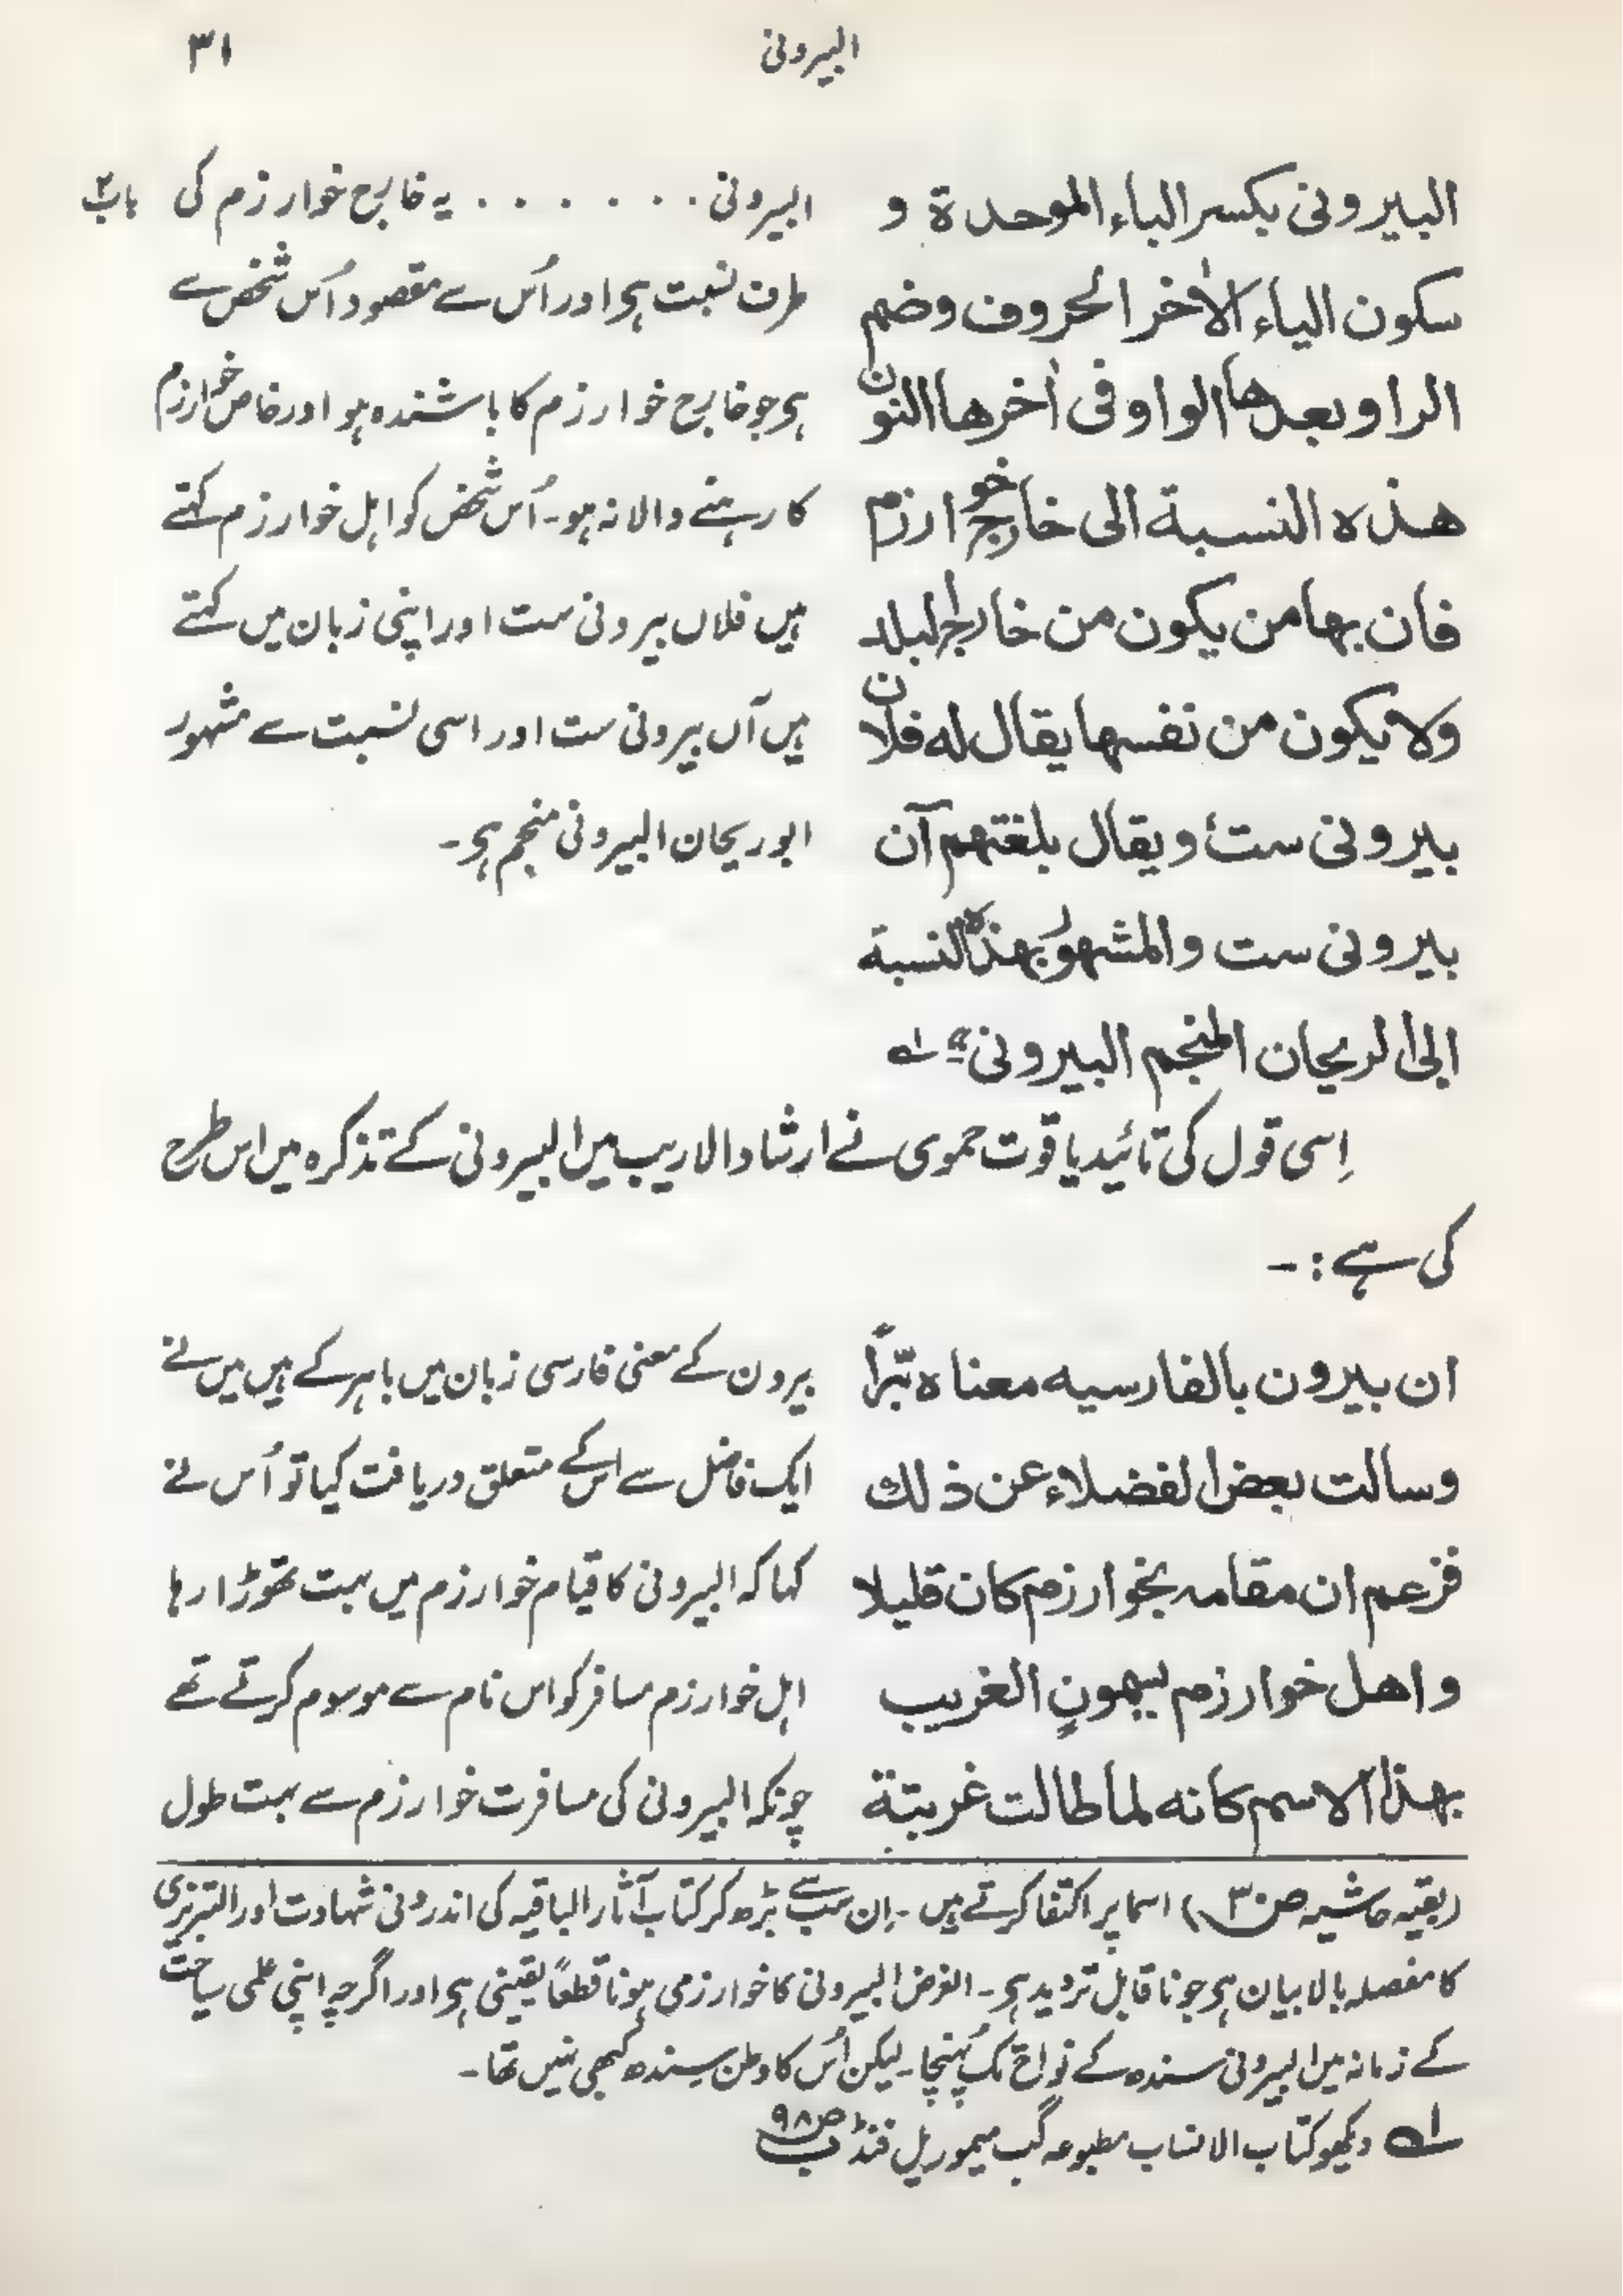 البیرونی ۳۱
البیرونی بکسر الباء الموحدة و
سکون الیاء الاٰخر الحروف وضم
الراو وبعدها الواو وفی اٰخرها النون
هذه النسبة الی خارج خوارزم
فان بها من یکون من خارج البلد
ولا یکون من نفسها یقال له فلان
بیرونی ست و یقال بلغتهم آن
بیرونی ست والمشهور بهذه النسبة
ابی الریحان المنجم البیرونی لہ
البیرونی . . . . . . . یہ خارج خوارزم کی باب
طرف نسبت ہی اور اُس سے مقصود اُس شخص سے
ہی جو خارج خوارزم کا باشندہ ہو اور خاص خوارزم
کا رہنے والا نہ ہو۔ اُس شخص کو اہل خوارزم کہتے
ہیں فلاں بیرونی ست اور اپنی زبان میں کہتے
ہیں آں بیرونی ست اور اسی نسبت سے مشہور
ابوریحان البیرونی منجم ہی۔
اِسی قول کی تائید یاقوت حموی نے ارشاد الاریب میں البیرونی کے تذکرہ میں اس طرح
کی ہے :-
ان بیرون بالفارسیه معناه برّاً
وسالت بعض الفضلاء عن ذلك
فزعم ان مقامه بخوارزم کان قلیلا
واهل خوارزم یسمون الغریب
بهذا الاسم کانه لما طالت غربتة
بیرون کے معنی فارسی زبان میں باہر کے ہیں میں نے
ایک فاضل سے اسکے متعلق دریافت کیا تو اُس نے
کہا کہ البیرونی کا قیام خوارزم میں بہت تھوڑا رہا
اہل خوارزم مسافر کو اس نام سے موسوم کرتے تھے
چونکہ البیرونی کی مسافرت خوارزم سے بہت طول
(بقیہ حاشیہ ص ۳۰) اسما پر اکتفا کرتے ہیں۔ اِن سب سے بڑھ کر کتاب آثار الباقیہ کی اندرونی شہادت اور التبریزی
کا مفصلہ بالا بیان ہی جو ناقابل تردید ہی۔ الغرض البیرونی کا خوارزمی ہونا قطعاً یقینی ہی اور اگرچہ اپنی علمی سیاحت
کے زمانہ میں البیرونی سندہ کے نواح تک پُہنچا۔ لیکن اُس کا وطن سندھ کبھی نہیں تھا۔
لہ دیکھو کتاب الانساب مطبوعہ گب میموریل فنڈ ص ۹۸ ب